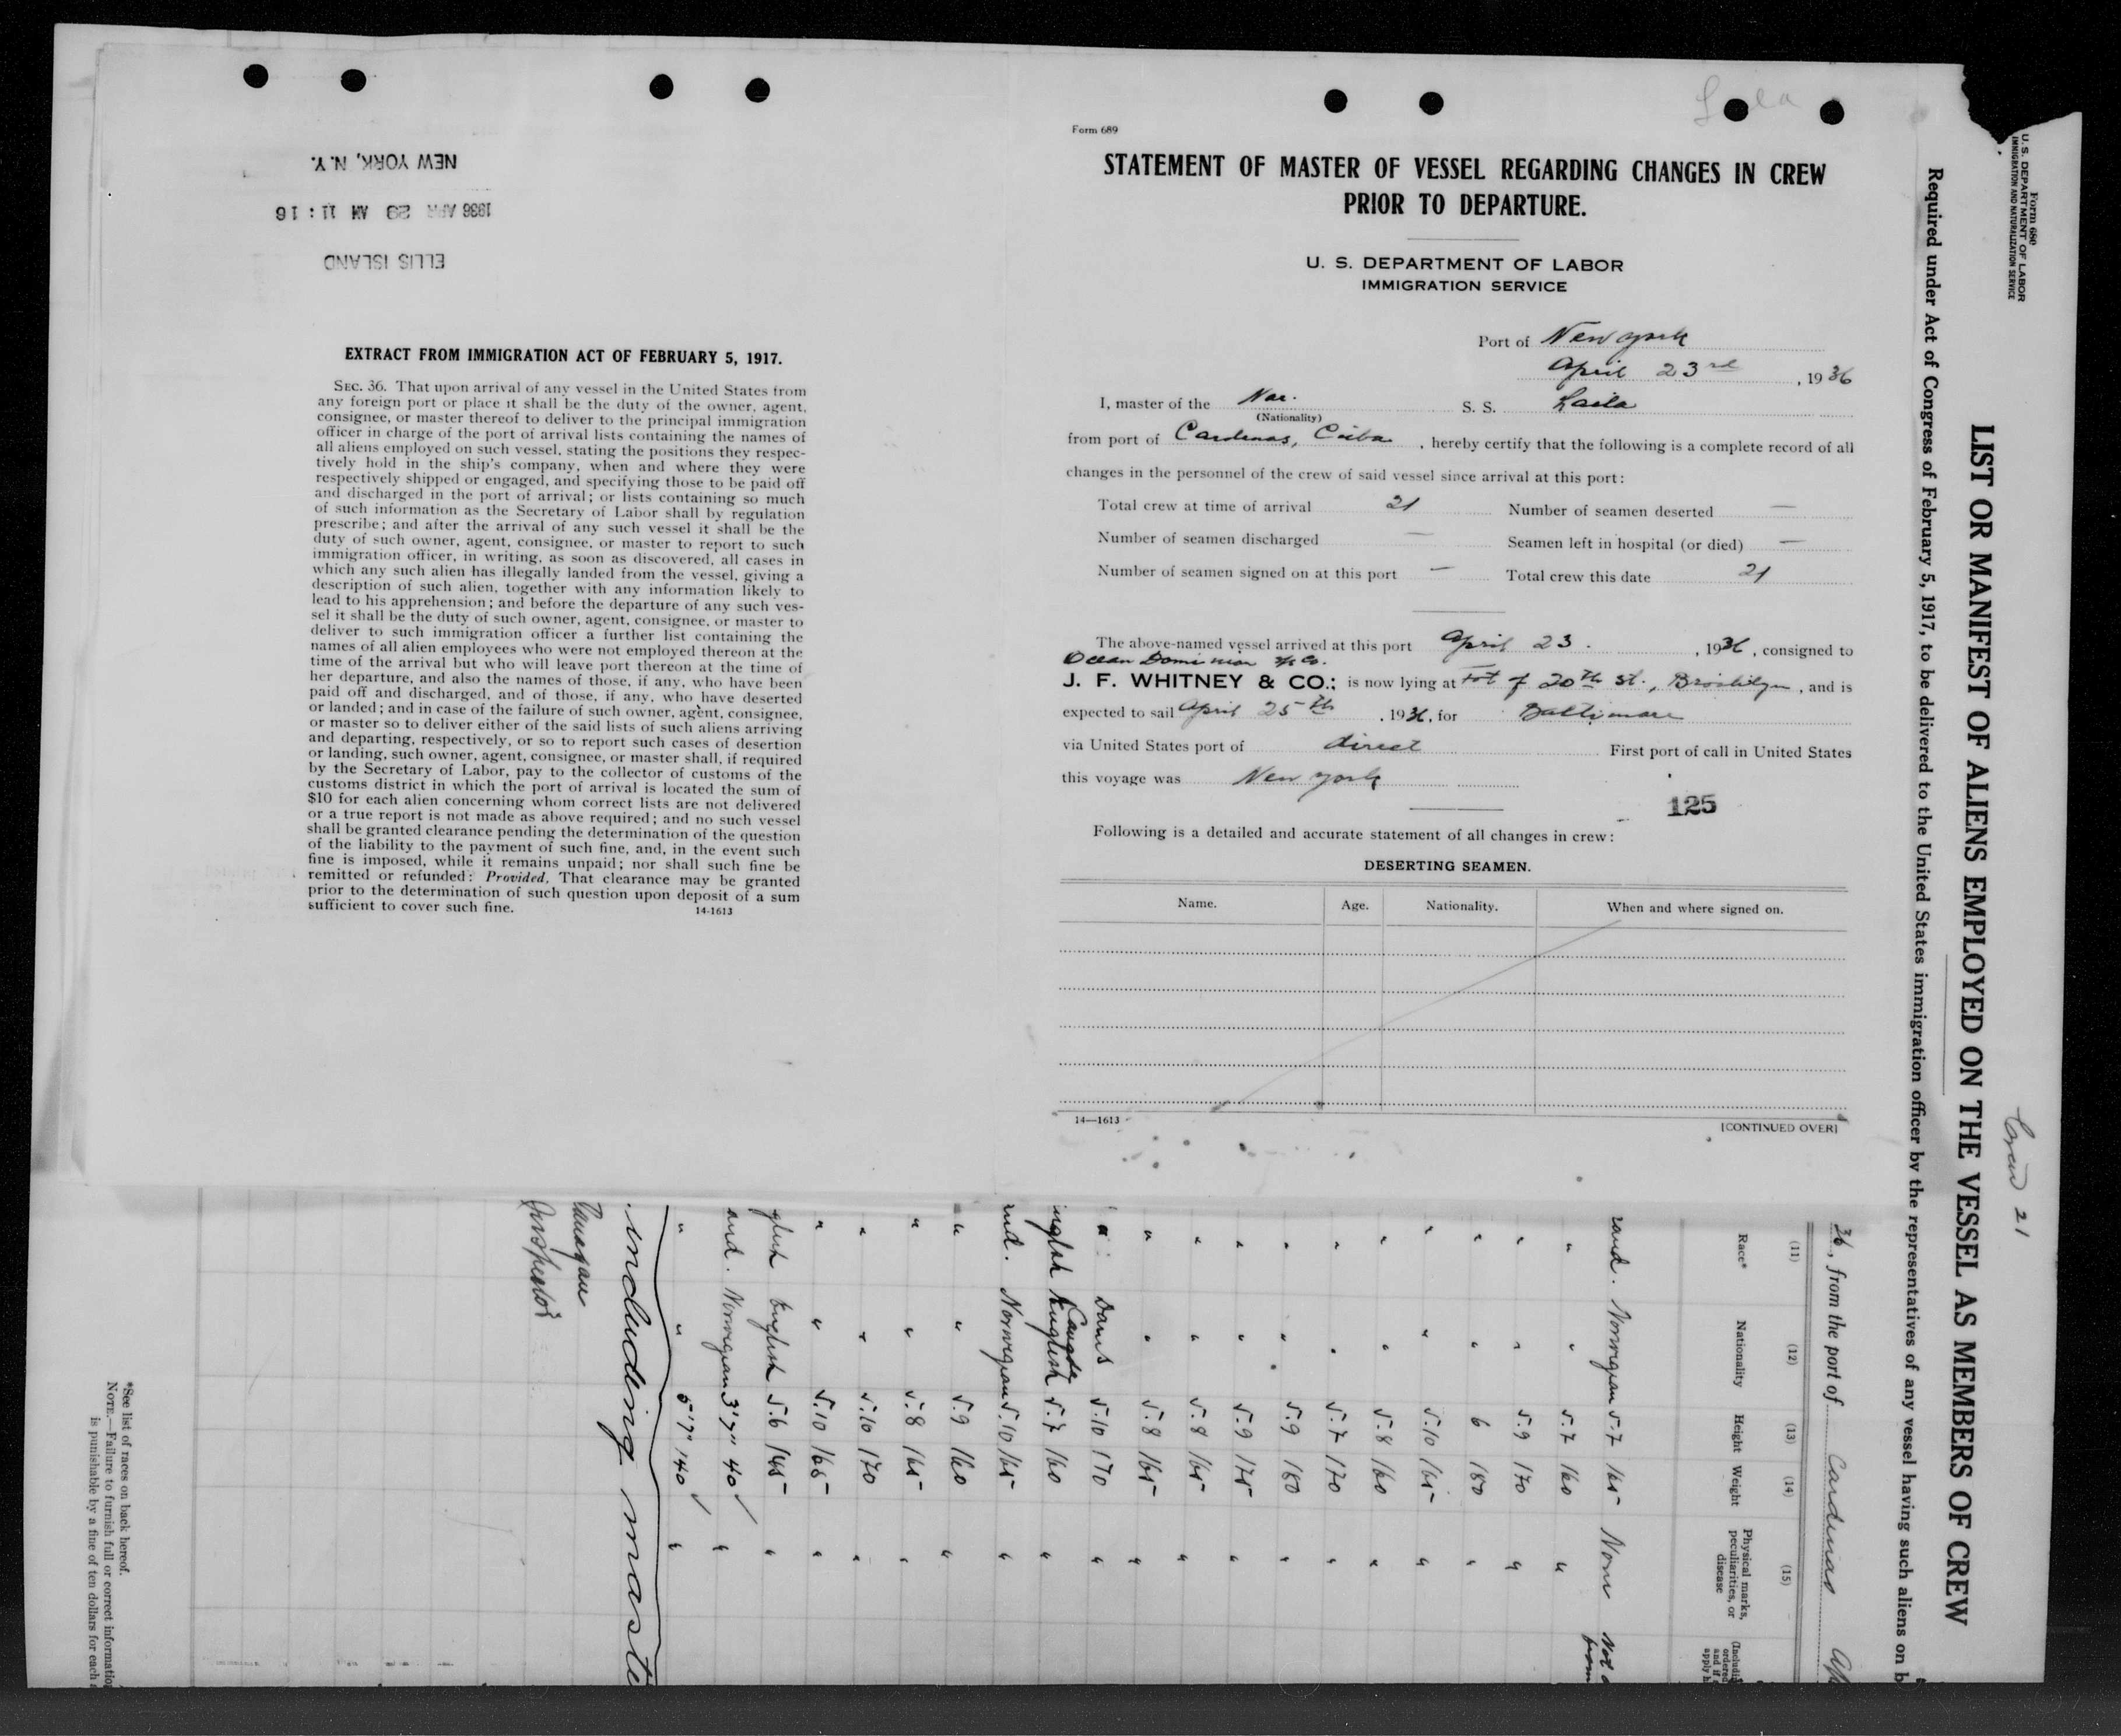 NEW YORK, N.Y.
1936 APR 29 AM 11:16
ELLIS ISLAND
EXTRACT FROM IMMIGRATION ACT OF FEBRUARY 5, 1917.
SEC. 36. That upon arrival of any vessel in the United States from
any foreign port or place it shall be the duty of the owner, agent,
consignee, or master thereof to deliver to the principal immigration
officer in charge of the port of arrival lists containing the names of
all aliens employed on such vessel, stating the positions they respec-
tively hold in the ship's company, when and where they were
respectively shipped or engaged, and specifying those to be paid off
and discharged in the port of arrival; or lists containing so much
of such information as the Secretary of Labor shall by regulation
prescribe; and after the arrival of any such vessel it shall be the
duty of such owner, agent, consignee, or master to report to such
immigration officer, in writing, as soon as discovered, all cases in
which any such alien has illegally landed from the vessel, giving a
description of such alien, together with any information likely to
lead to his apprehension; and before the departure of any such ves-
sel it shall be the duty of such owner, agent, consignee, or master to
deliver to such immigration officer a further list containing the
names of all alien employees who were not employed thereon at the
time of the arrival but who will leave port thereon at the time of
her departure, and also the names of those, if any, who have been
paid off and discharged, and of those, if any, who have deserted
or landed; and in case of the failure of such owner, agent, consignee,
or master so to deliver either of the said lists of such aliens arriving
and departing, respectively, or so to report such cases of desertion
or landing, such owner, agent, consignee, or master shall, if required
by the Secretary of Labor, pay to the collector of customs of the
customs district in which the port of arrival is located the sum of
$10 for each alien concerning whom correct lists are not delivered
or a true report is not made as above required; and no such vessel
shall be granted clearance pending the determination of the question
of the liability to the payment of such fine, and, in the event such
fine is imposed, while it remains unpaid; nor shall such fine be
remitted or refunded: Provided, That clearance may be granted
prior to the determination of such question upon deposit of a sum
sufficient to cover such fine.
14-1613
Form 689
STATEMENT OF MASTER OF VESSEL REGARDING CHANGES IN CREW
PRIOR TO DEPARTURE.
U. S. DEPARTMENT OF LABOR
IMMIGRATION SERVICE
Port of New York
April 23rd, 1936
I, master of the Nor. S. S. Laila
(Nationality)
from port of Cardenas, Cuba, hereby certify that the following is a complete record of all
changes in the personnel of the crew of said vessel since arrival at this port:
Total crew at time of arrival 21 Number of seamen deserted —
Number of seamen discharged — Seamen left in hospital (or died) —
Number of seamen signed on at this port — Total crew this date 21
The above-named vessel arrived at this port April 23, 1936, consigned to
Ocean Dominion S/S Co.
J. F. WHITNEY & CO.; is now lying at Fot of 20th St., Brooklyn, and is
expected to sail April 25th, 1936, for Baltimore
via United States port of direct First port of call in United States
this voyage was New York
125
Following is a detailed and accurate statement of all changes in crew:
DESERTING SEAMEN.
Name. Age. Nationality. When and where signed on.
14—1613
[CONTINUED OVER]
Form 680
U. S. DEPARTMENT OF LABOR
IMMIGRATION AND NATURALIZATION SERVICE
Crew 21
LIST OR MANIFEST OF ALIENS EMPLOYED ON THE VESSEL AS MEMBERS OF CREW
Required under Act of Congress of February 5, 1917, to be delivered to the United States immigration officer by the representatives of any vessel having such aliens on b
36, from the port of Cardenas
(11) (12) (13) (14) (15)
Race* Nationality Height Weight Physical marks, peculiarities, or disease
rand. Norwegian 5-7 165 None
" " 5.7 160 "
" " 5.9 170 "
" " 6 180 "
" " 5.10 165 "
" " 5.8 160 "
" " 5.7 170 "
" " 5.9 180 "
" " 5.9 175 "
" " 5.8 165 "
" " 5.8 165 "
" Danis 5.10 170 "
nglish English 5.7 160 "
nd. Norwegian 5.10 165 "
" " 5.9 160 "
" " 5.8 165 "
" " 5.10 170 "
" " 5.10 165 "
glish English 5.6 145 "
and. Norwegian 3'7" 40 "
" " 5'7" 140 "
including maste
Inspector
*See list of races on back hereof.
NOTE.—Failure to furnish full or correct informatio
is punishable by a fine of ten dollars for each a